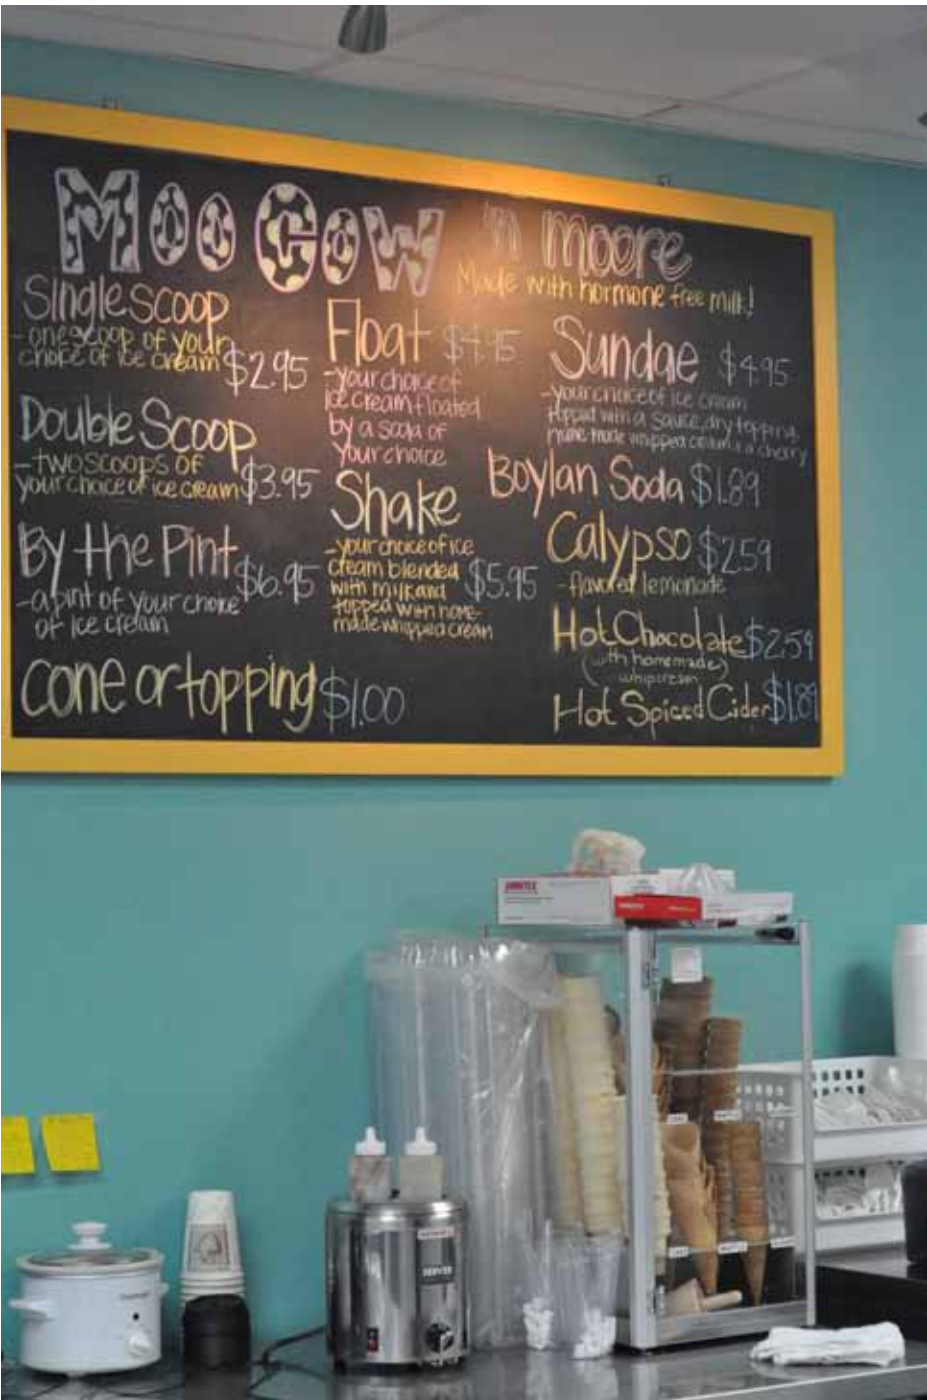 Moo Cow 'n moore
Made with hormone free milk!
Single scoop
- one scoop of your
choice of ice cream $2.95
Double Scoop
- two scoops of
your choice of ice cream $3.95
By the Pint $6.95
- a pint of your choice
of ice cream
Cone or topping $1.00
Float $4.95
- your choice of
ice cream floated
by a soda of
your choice
Shake
- your choice of ice
cream blended $5.95
with milk and
topped with home-
made whipped cream
Sundae $4.95
- your choice of ice cream
topped with a sauce, dry topping,
home made whipped cream & a cherry
Boylan Soda $1.89
Calypso $2.59
- flavored lemonade
Hot Chocolate $2.59
(with homemade)
whipcream
Hot Spiced Cider $1.89
SERVER